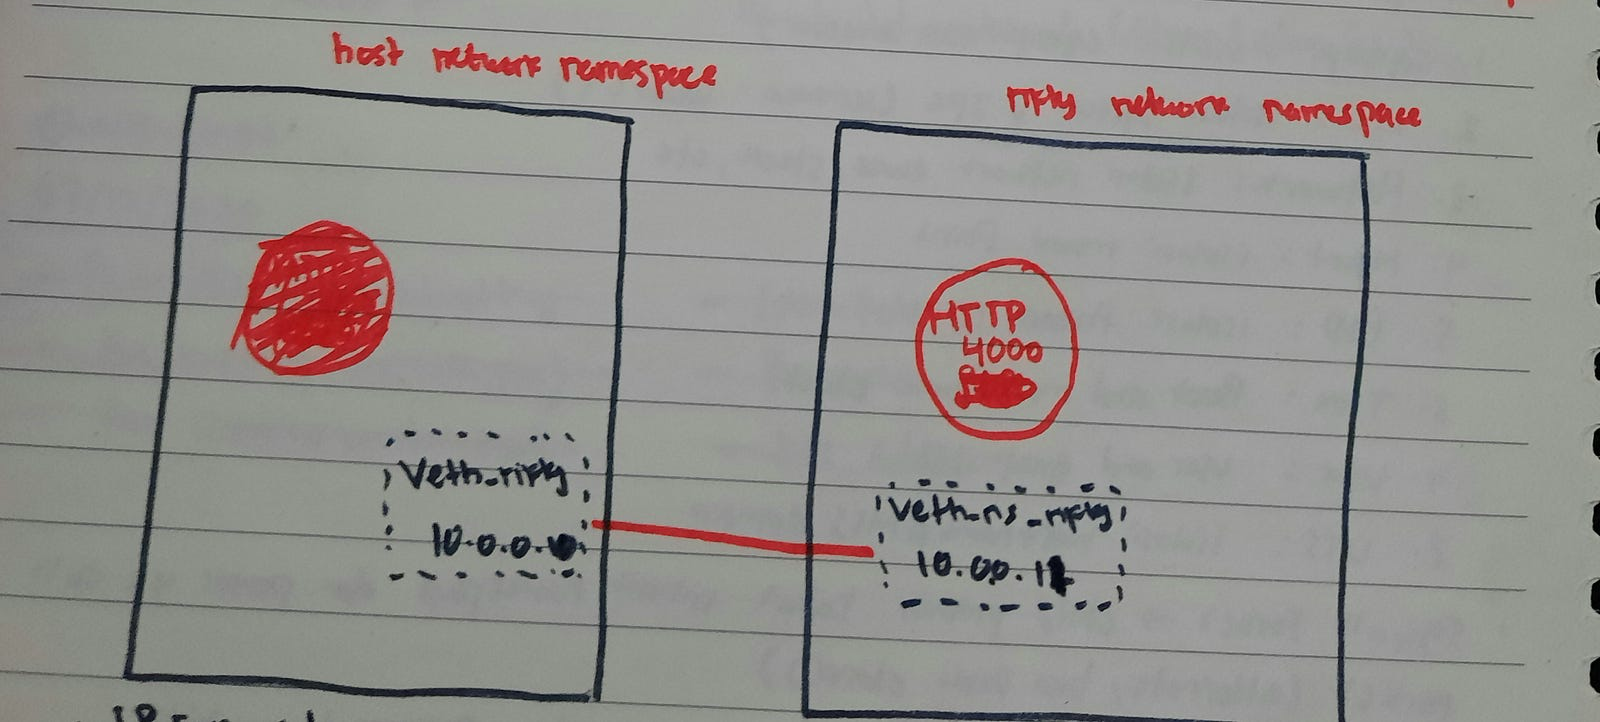 host network namespace
rifky network namespace
HTTP
4000
Veth_rifky
10.0.0.10
Veth_ns_rifky
10.00.11